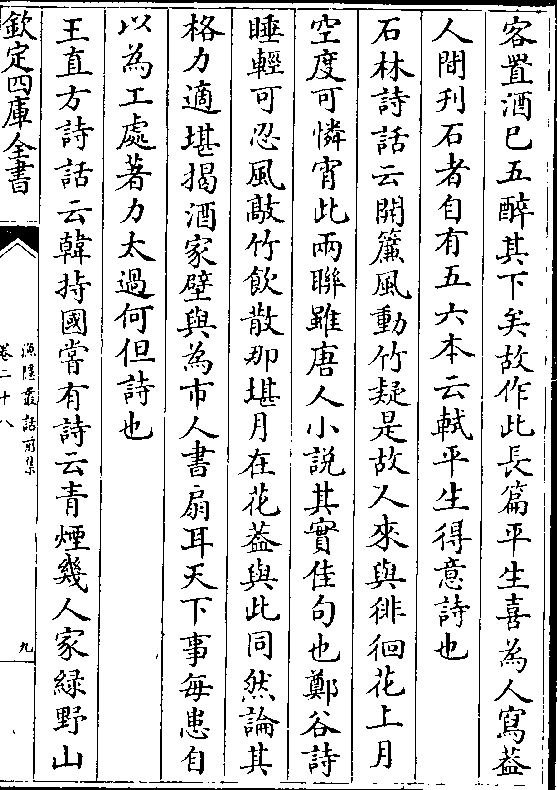 客置酒已五醉其下矣故作此長篇平生喜為人寫葢
人間刊石者自有五六本云軾平生得意詩也
石林詩話云開簾風動竹疑是故人來與徘徊花上月
空度可憐宵此兩聯雖唐人小說其實佳句也鄭谷詩
睡輕可忍風敲竹飲散那堪月在花葢與此同然論其
格力適堪揭酒家壁與為市人書扇耳天下事每患自
以為工處著力太過何但詩也
王直方詩話云韓持國嘗有詩云青煙幾人家綠野山
欽定四庫全書
漁隱叢話前集
卷二十八
九